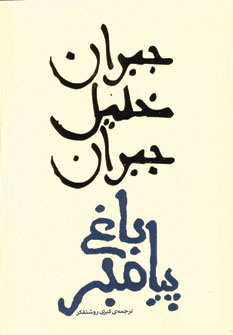 جبران
خلیل
جبران
باغ
پیامبر
ترجمه‌ی کبری روشنفکر